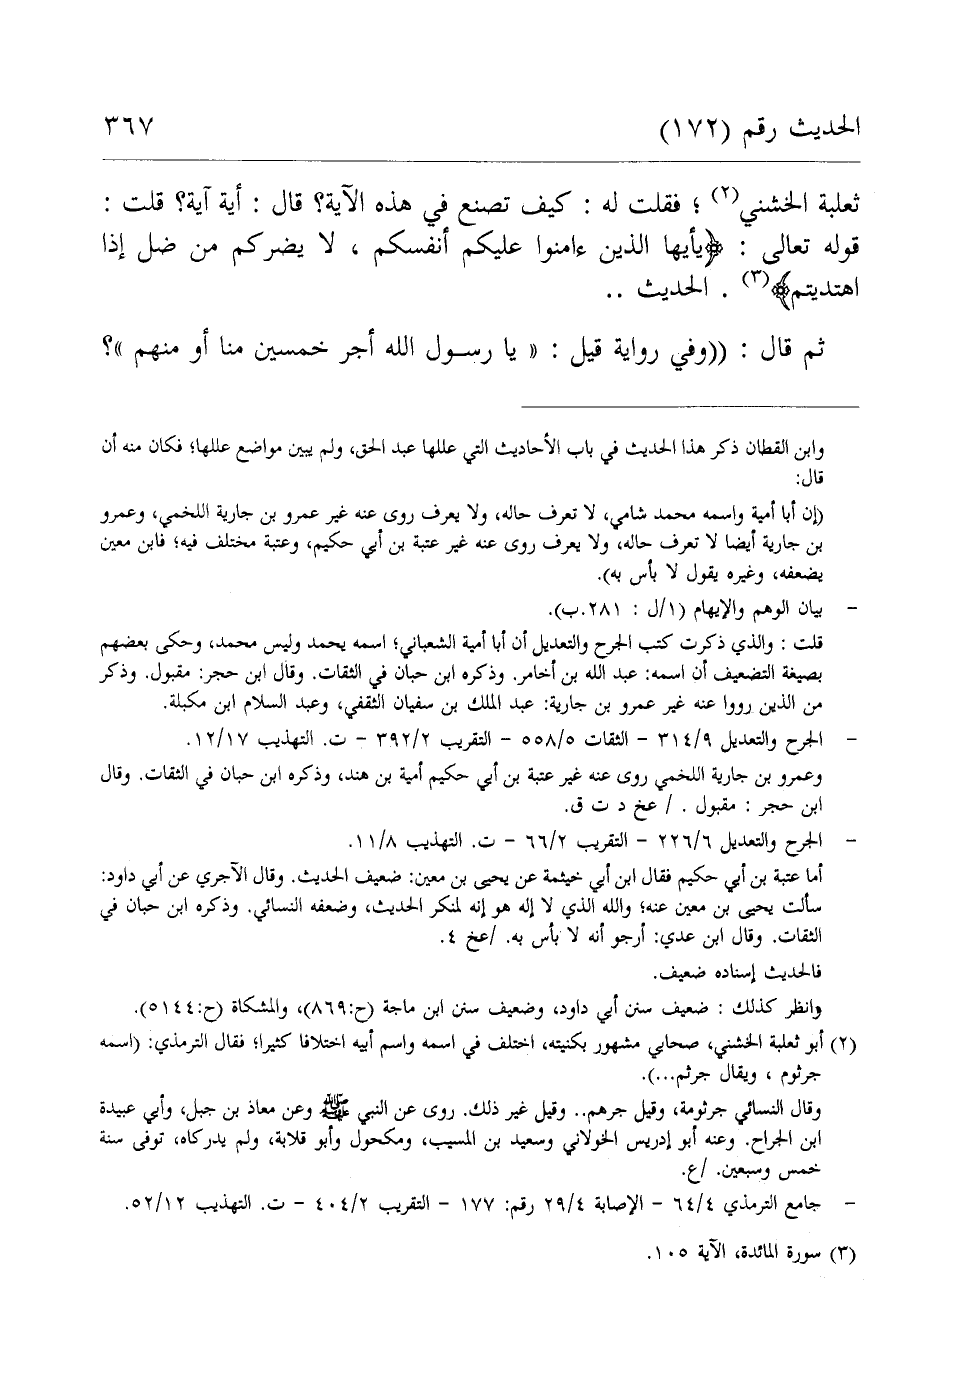 الحديث رقم (١٧٢) ٣٦٧
ثعلبة الخشني(٢) ؛ فقلت له : كيف تصنع في هذه الآية؟ قال : أية آية؟ قلت :
قوله تعالى : ﴿يأيها الذين ءامنوا عليكم أنفسكم ، لا يضركم من ضل إذا
اهتديتم﴾(٣) . الحديث ..
ثم قال : ((وفي رواية قيل : « يا رسول الله أجر خمسين منا أو منهم »؟
وابن القطان ذكر هذا الحديث في باب الأحاديث التي عللها عبد الحق، ولم يبين مواضع عللها؛ فكان منه أن
قال:
(إن أبا أمية واسمه محمد شامي، لا تعرف حاله، ولا يعرف روى عنه غير عمرو بن جارية اللخمي، وعمرو
بن جارية أيضا لا تعرف حاله، ولا يعرف روى عنه غير عتبة بن أبي حكيم، وعتبة مختلف فيه؛ فابن معين
يضعفه، وغيره يقول لا بأس به).
- بيان الوهم والإيهام (١/ل : ٢٨١.ب).
قلت : والذي ذكرت كتب الجرح والتعديل أن أبا أمية الشعباني؛ اسمه يحمد وليس محمد، وحكى بعضهم
بصيغة التضعيف أن اسمه: عبد الله بن أخامر. وذكره ابن حبان في الثقات. وقال ابن حجر: مقبول. وذكر
من الذين رووا عنه غير عمرو بن جارية: عبد الملك بن سفيان الثقفي، وعبد السلام ابن مكبلة.
- الجرح والتعديل ٣١٤/٩ - الثقات ٥٥٨/٥ - التقريب ٣٩٢/٢ - ت. التهذيب ١٢/١٧.
وعمرو بن جارية اللخمي روى عنه غير عتبة بن أبي حكيم أمية بن هند، وذكره ابن حبان في الثقات. وقال
ابن حجر : مقبول . / عخ د ت ق.
- الجرح والتعديل ٢٢٦/٦ - التقريب ٦٦/٢ - ت. التهذيب ١١/٨.
أما عتبة بن أبي حكيم فقال ابن أبي خيثمة عن يحيى بن معين: ضعيف الحديث. وقال الآجري عن أبي داود:
سألت يحيى بن معين عنه؛ والله الذي لا إله هو إنه لمنكر الحديث، وضعفه النسائي. وذكره ابن حبان في
الثقات. وقال ابن عدي: أرجو أنه لا بأس به. /عخ ٤.
فالحديث إسناده ضعيف.
وانظر كذلك : ضعيف سنن أبي داود، وضعيف سنن ابن ماجة (ح:٨٦٩)، والمشكاة (ح:٥١٤٤).
(٢) أبو ثعلبة الخشني، صحابي مشهور بكنيته، اختلف في اسمه واسم أبيه اختلافا كثيرا؛ فقال الترمذي: (اسمه
جرثوم ، ويقال جرثم...).
وقال النسائي جرثومة، وقيل جرهم.. وقيل غير ذلك. روى عن النبي ﷺ وعن معاذ بن جبل، وأبي عبيدة
ابن الجراح. وعنه أبو إدريس الخولاني وسعيد بن المسيب، ومكحول وأبو قلابة، ولم يدركاه، توفى سنة
خمس وسبعين. /ع.
- جامع الترمذي ٦٤/٤ - الإصابة ٢٩/٤ رقم: ١٧٧ - التقريب ٤٠٤/٢ - ت. التهذيب ٥٢/١٢.
(٣) سورة المائدة، الآية ١٠٥.